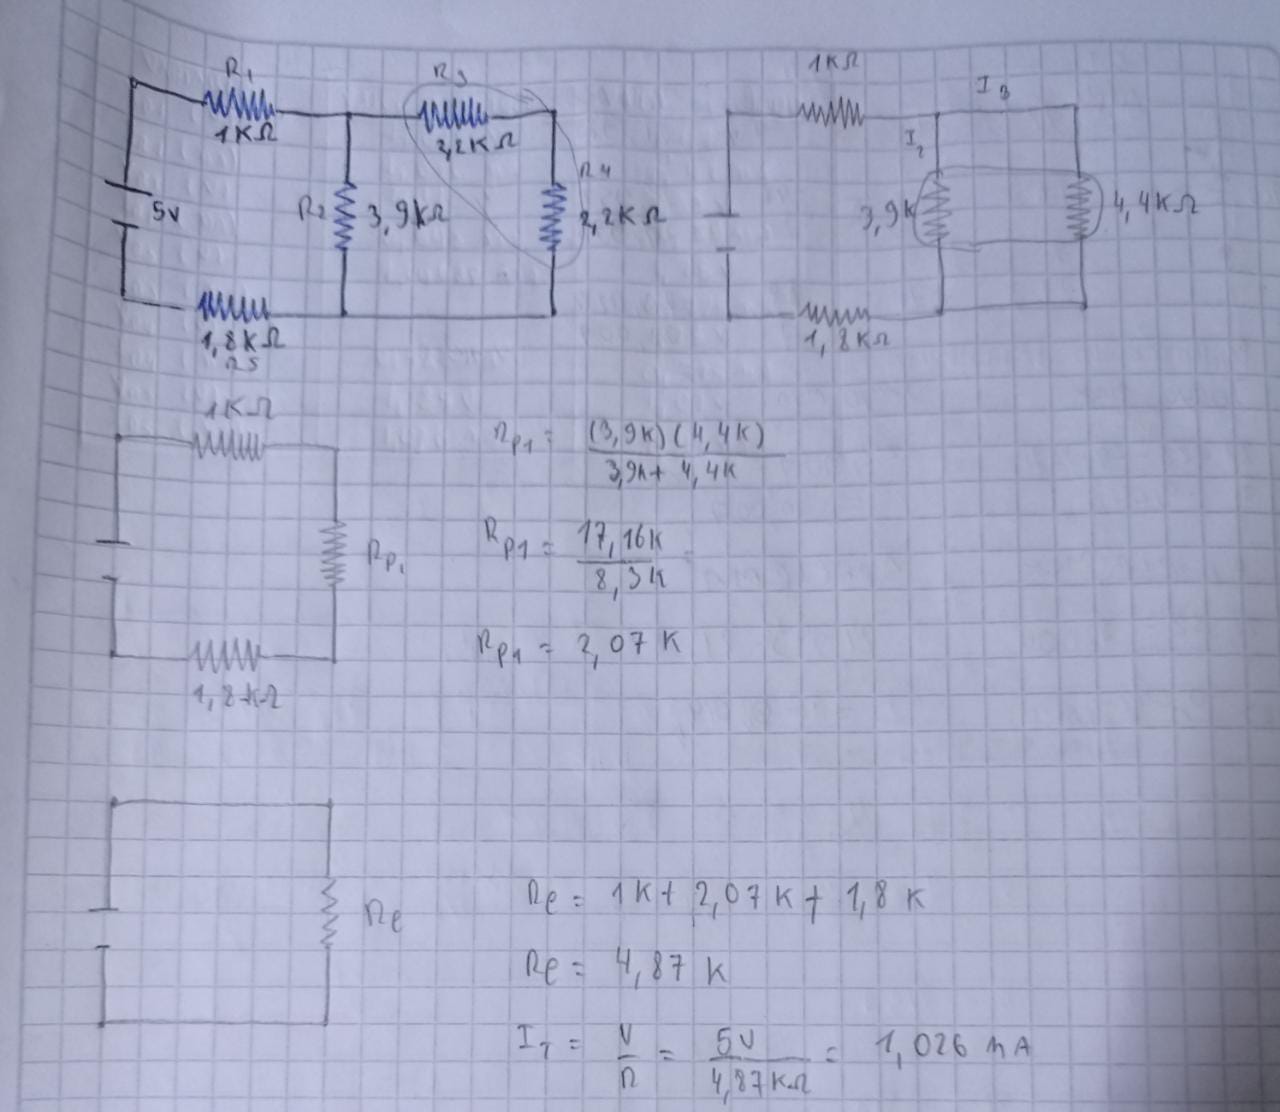 R1
1KΩ
R3
2,2KΩ
5V
R2
3,9KΩ
R4
2,2KΩ
1,8KΩ
R5
1KΩ
I3
I2
3,9K
4,4KΩ
1,8KΩ
1KΩ
Rp1
1,8KΩ
Rp1 = (3,9K)(4,4K)
3,9K+ 4,4K
Rp1 = 17,16K
8,3K
Rp1 = 2,07 K
Re
Re = 1K + 2,07K + 1,8 K
Re = 4,87 K
IT = V = 5V = 1,026 mA
R 4,87KΩ